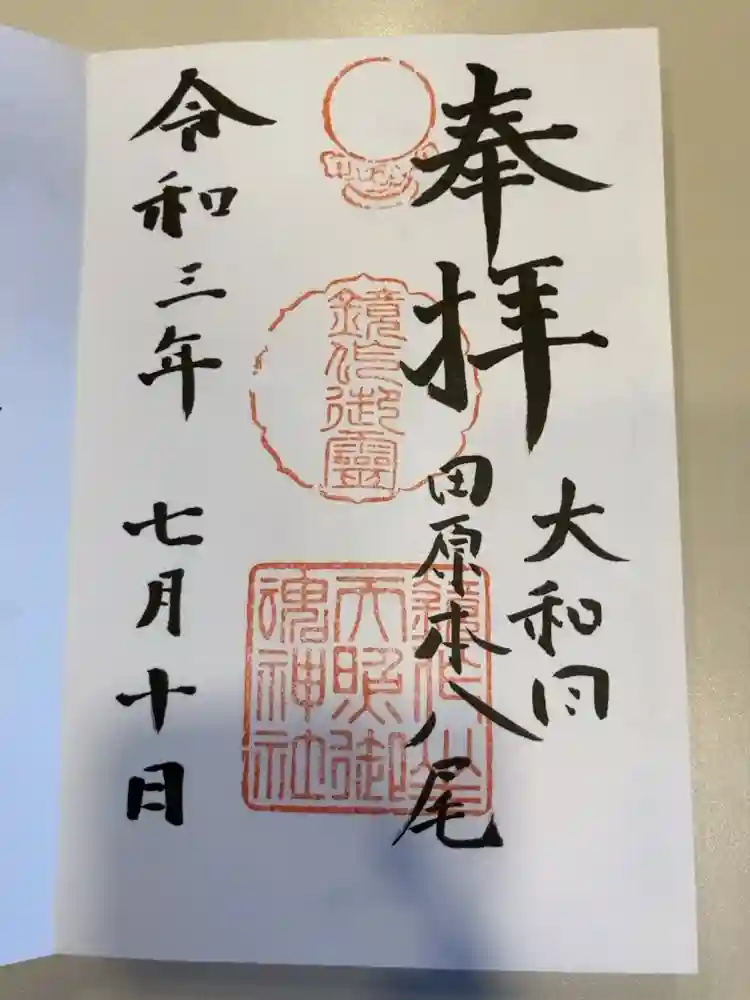 奉拝
大和国
田原本八尾
鏡作御靈
鏡作坐
天照御
魂神社
令和三年 七月十日